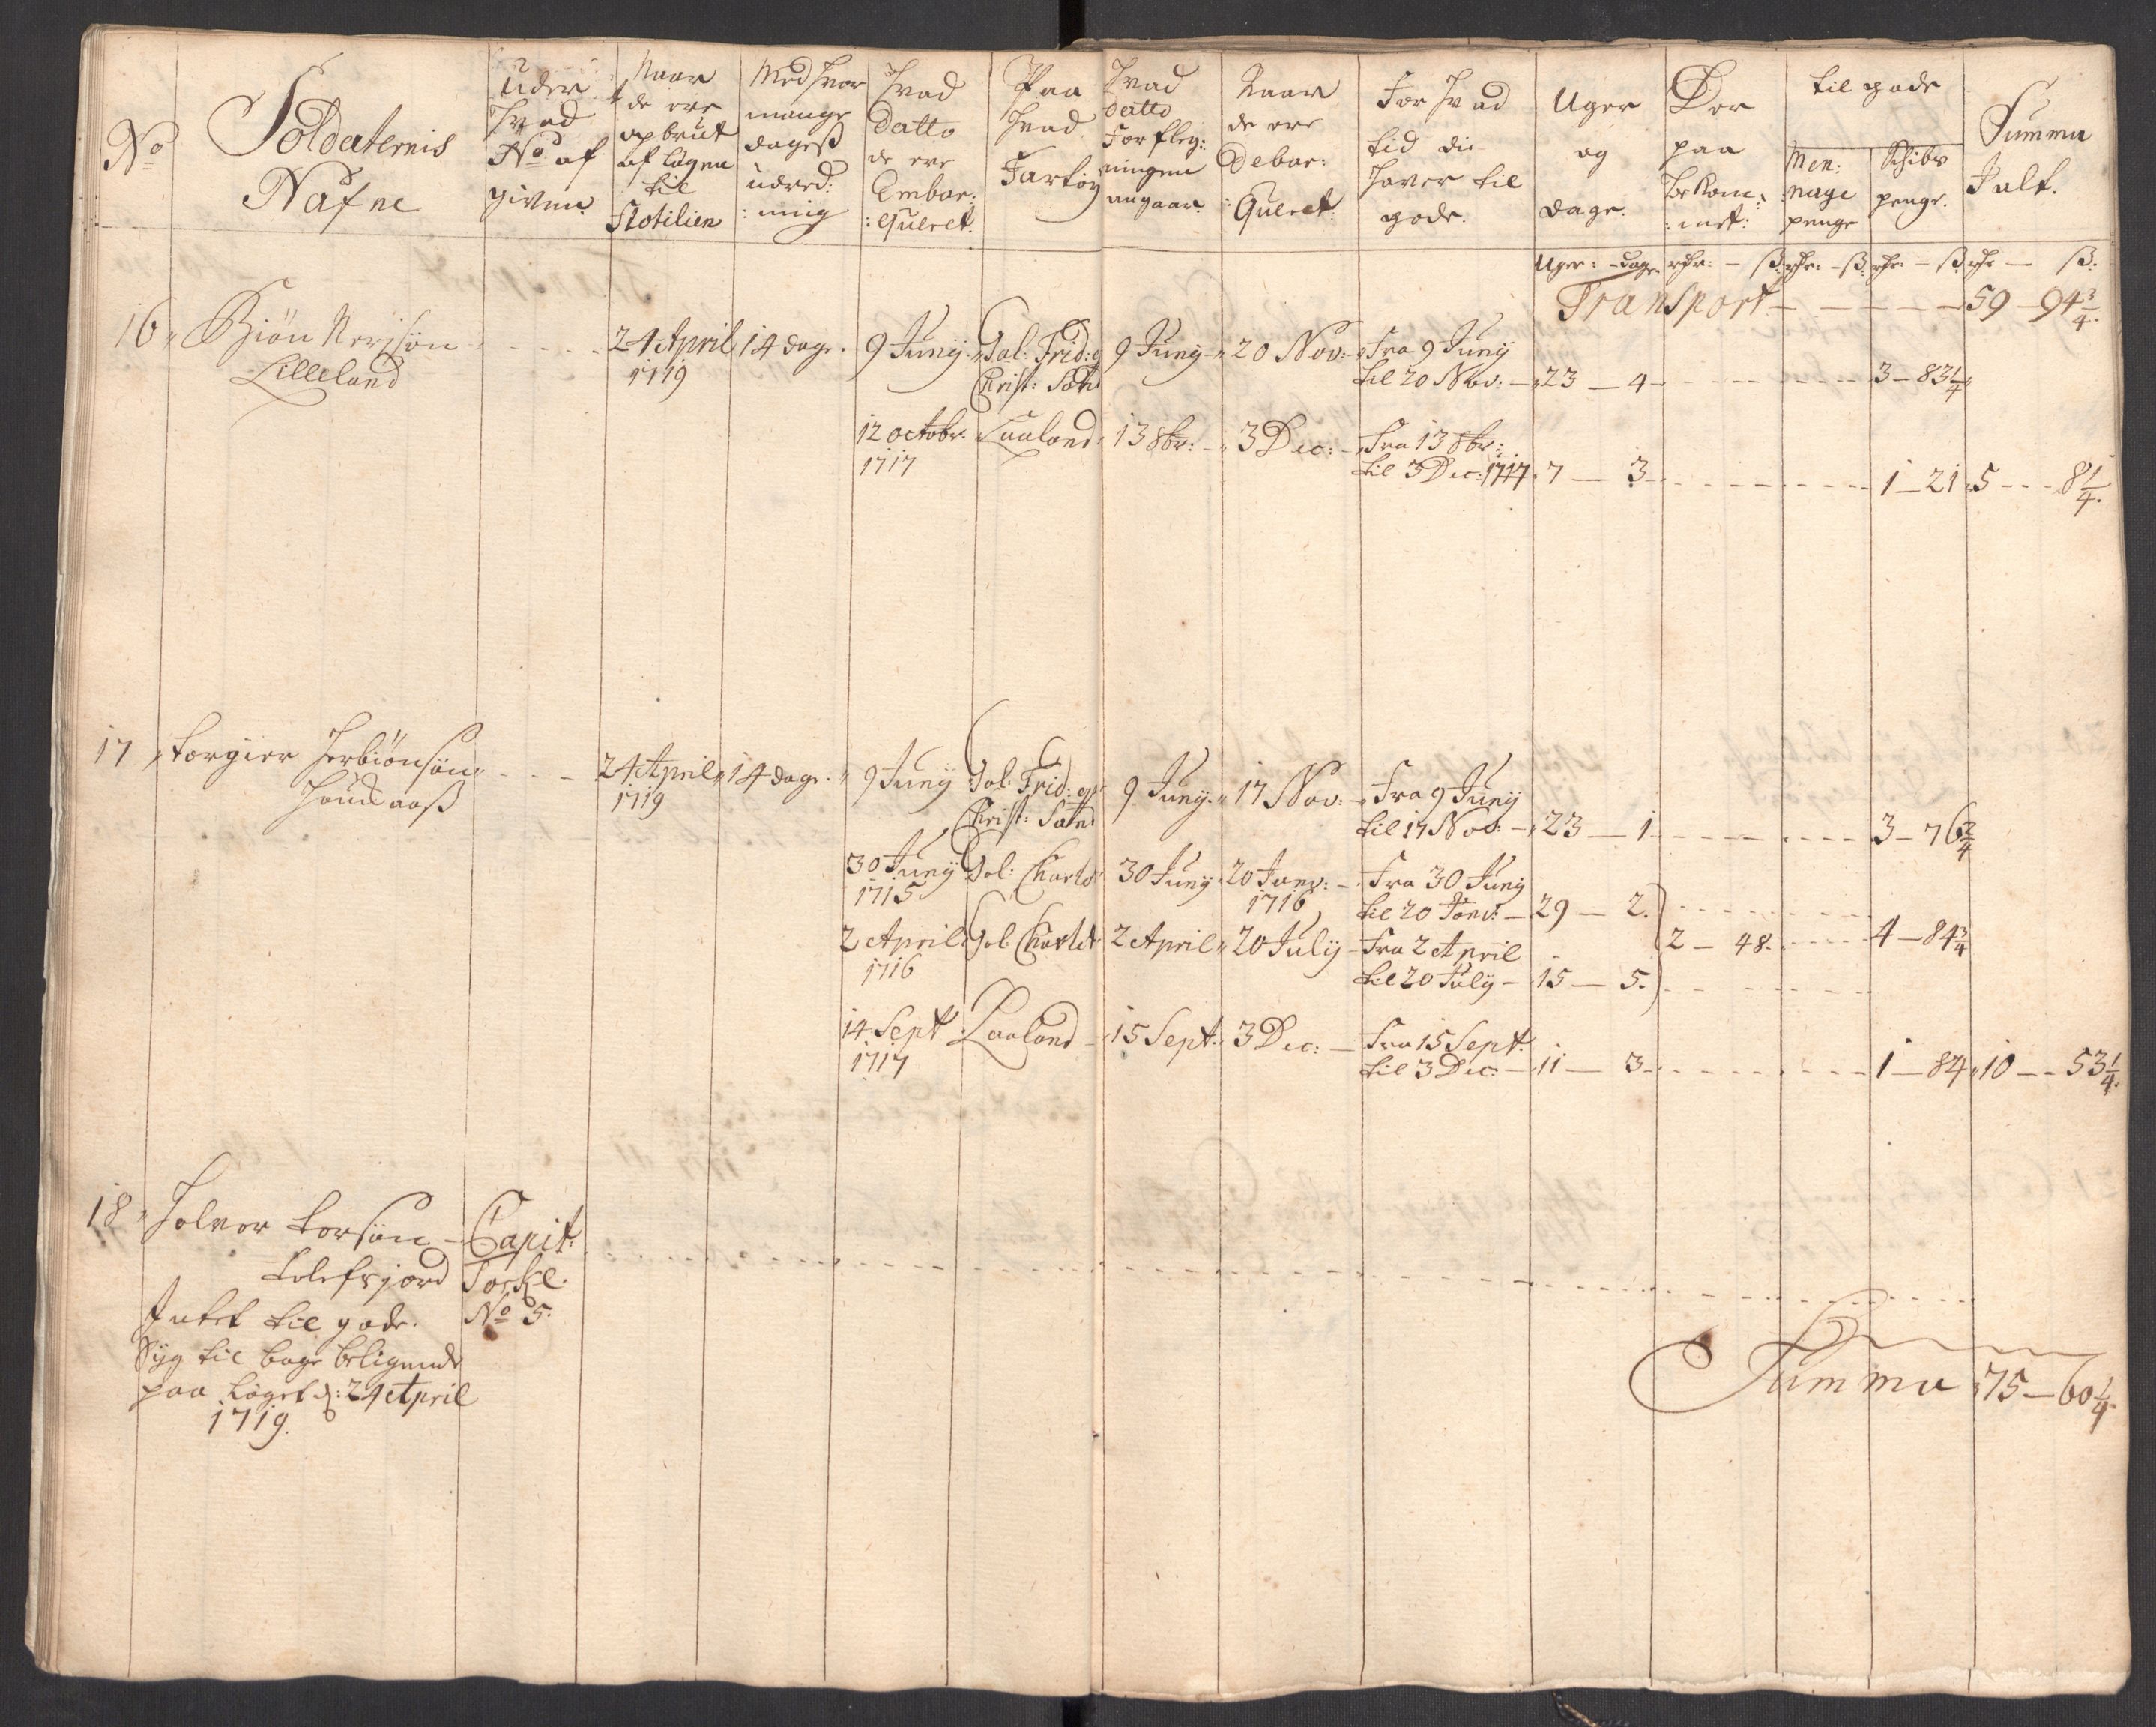 No
Soldaternis
Nafne
Under
Hvad
No af
given
Naar
de ere
opbrut
af lägen
til
Flotilien
Med hvor
mange
dages
üdred:
:ning
Hvad
Datto
de ere
Embar:
:queret.
Paa
Hvad
Fartöy
Hvad
datto
Forfleg:
ningen
angaar.
Naar
de ere
Debar:
:Queret.
For Hvad
tid die
haver til
gode.
Uger
og
dage.
Der
paa
bekom:
:met:
til gode
Men:
:nage
penge
Schibs
penge.
Summa
Jalt.
Uger: - dage. rdr: - ß. rdr: - ß. rdr: - ß rdr - ß.
Transport - - - - - 59 - 94 3/4.
16 Biön Nerisön - - - 24 April 14 dage. 9 Junij Gal: Frid: og 9 Junij 20 Nov: Fra 9 Junij
Lilleland 1719 Christ: Søtn til 20 Nov: - 23 - 4 - - - - 3 - 83 1/4
12 octobr. Laaland 13 8br: - 3 Dec: - Fra 13 8br:
1717 til 3 Dec: 1717. 7 - 3 - - - - 1 - 21 5 - - 8 1/4.
17 Torgier Herbiönsön - - - 24 April 14 dage. 9 Junij Gal: Frid: og 9 Junij 17 Nov: - Fra 9 Junij
1719 Christ: Søtn til 17 Nov: - 23 - 1 - - - - 3 - 76 2/4
30 Junij Gal: Charlot 30 Junij 20 Janv: - Fra 30 Junij
1715 1716 til 20 Janv: - 29 - 2.
2 April Gal Charlot 2 April 20 Julij - Fra 2 April 2 - 48. - - - 4 - 84 3/4
1716 til 20 Julij - 15 - 5.
14. Sept Laaland - 15 Sept. 3 Dec: - Fra 15 Sept.
1717 til 3 Dec: - 11 - 3 - - - - 1 - 84 10 - - 53 1/4.
18 Halvor Torsön - Capit:
No 5.
Intet til gode.
Syg til bage beligende
paa Läget d: 24 April
1719.
Summa 75 - 60 1/4.